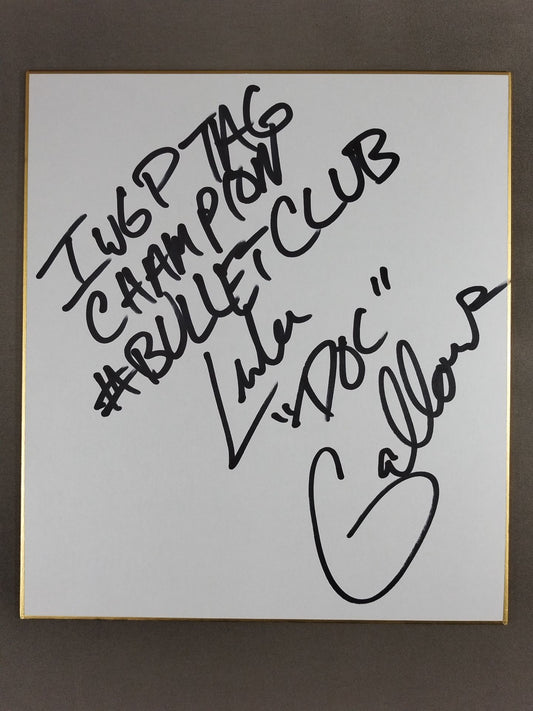 IWGP TAG
CHAMPION
#BULLETCLUB
Luke
"DOC"
Gallows